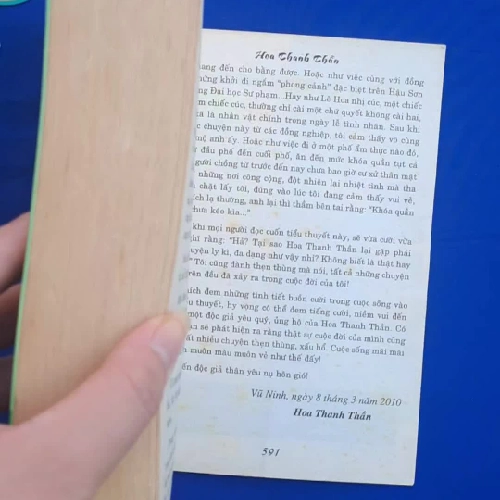 Hoa Thanh Thần
mang đến cho bằng được. Hoặc như việc cùng với đồng
hứng khởi đi ngắm "phong cảnh" đặc biệt trên Hậu Sơn
ng Đại học Sư phạm. Hay như Lê Hoa nhị cúc, một chiếc
m chiếc cúc, thường chỉ cài một chứ quyết không cài hai,
ra là nhân vật chính trong ngày lễ tình nhân. Sau khi
c chuyện này từ các đồng nghiệp, tôi cảm thấy vô cùng
mộ anh ấy. Hoặc như việc đi ở một phố ẩm thực nào đó,
ừ đầu phố đến cuối phố, ăn đến mức khóa quần tụt cả
người cuồng từ trước đến nay chưa bao giờ cư xử thân mật
những nơi công cộng, đột nhiên lại nhiệt tình mà tha
chặt lấy tôi, đúng vào lúc tôi đang cảm thấy vui vẻ,
ch lạ thường, anh lại thì thầm bên tai rằng: "Khóa quần
chưa kéo kìa..."
khi mọi người đọc cuốn tiểu thuyết này, sẽ vừa cười, vừa
hĩ rằng: "Hả? Tại sao Hoa Thanh Thần lại gặp phải
huyện ly kì, đa dạng như vậy nhỉ? Không biết là thật hay
"Tôi cũng đành thẹn thùng mà nói, tất cả những chuyện
trên đều đã xảy ra trong cuộc đời của tôi!
hích đem những tình tiết hoặc cười trong cuộc sống vào
u thuyết, hy vọng có thể đem tiếng cười, niềm vui đến
một độc giả yêu quý, ủng hộ của Hoa Thanh Thần. Có
sẽ phát hiện ra rằng thật sự cuộc đời của mình cũng
rất nhiều chuyện thẹn thùng, xấu hổ. Cuộc sống mãi mãi
muôn màu muôn vẻ như thế đấy!
ến độc giả thân yêu nụ hôn gió!
Vũ Ninh, ngày 8 tháng 3 năm 2010
Hoa Thanh Thần
591